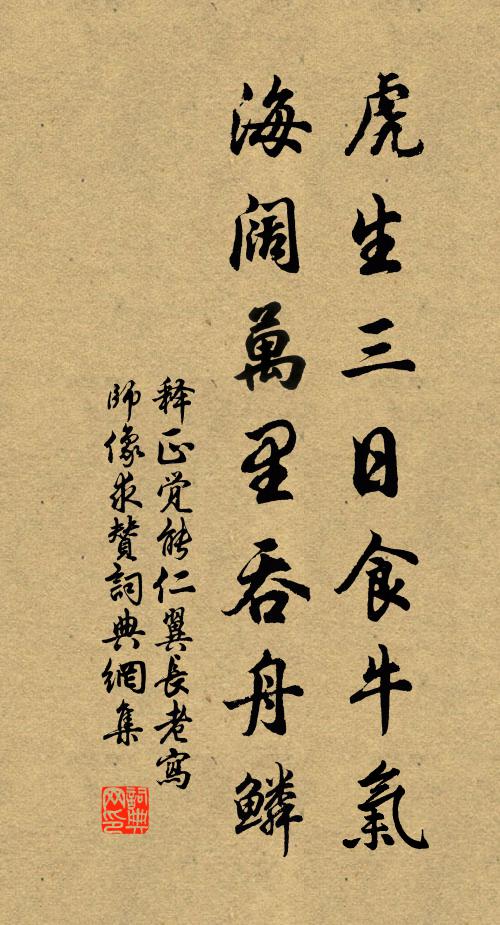 虎生三日食牛氣
海阔萬里吞舟鱗
释正觉能仁翼長老寫
師像求贊詞典網集
詞典
网印